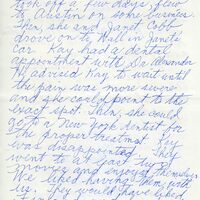 took off a few days, flew
to Austin on some business.
Then, she and Janet Cobb
drove on to West in Janet's
car. Kay had a dental
appointment with Dr. Alexander
He advised Kay to wait until
the pain was more severe
and she could point to the
exact spot. Then, she could
get a New York dentist for
the proper treatment. Kay
was disappointed. They
went to at last
movies and enjoyed themselves.
We liked having them with
us. They would have liked